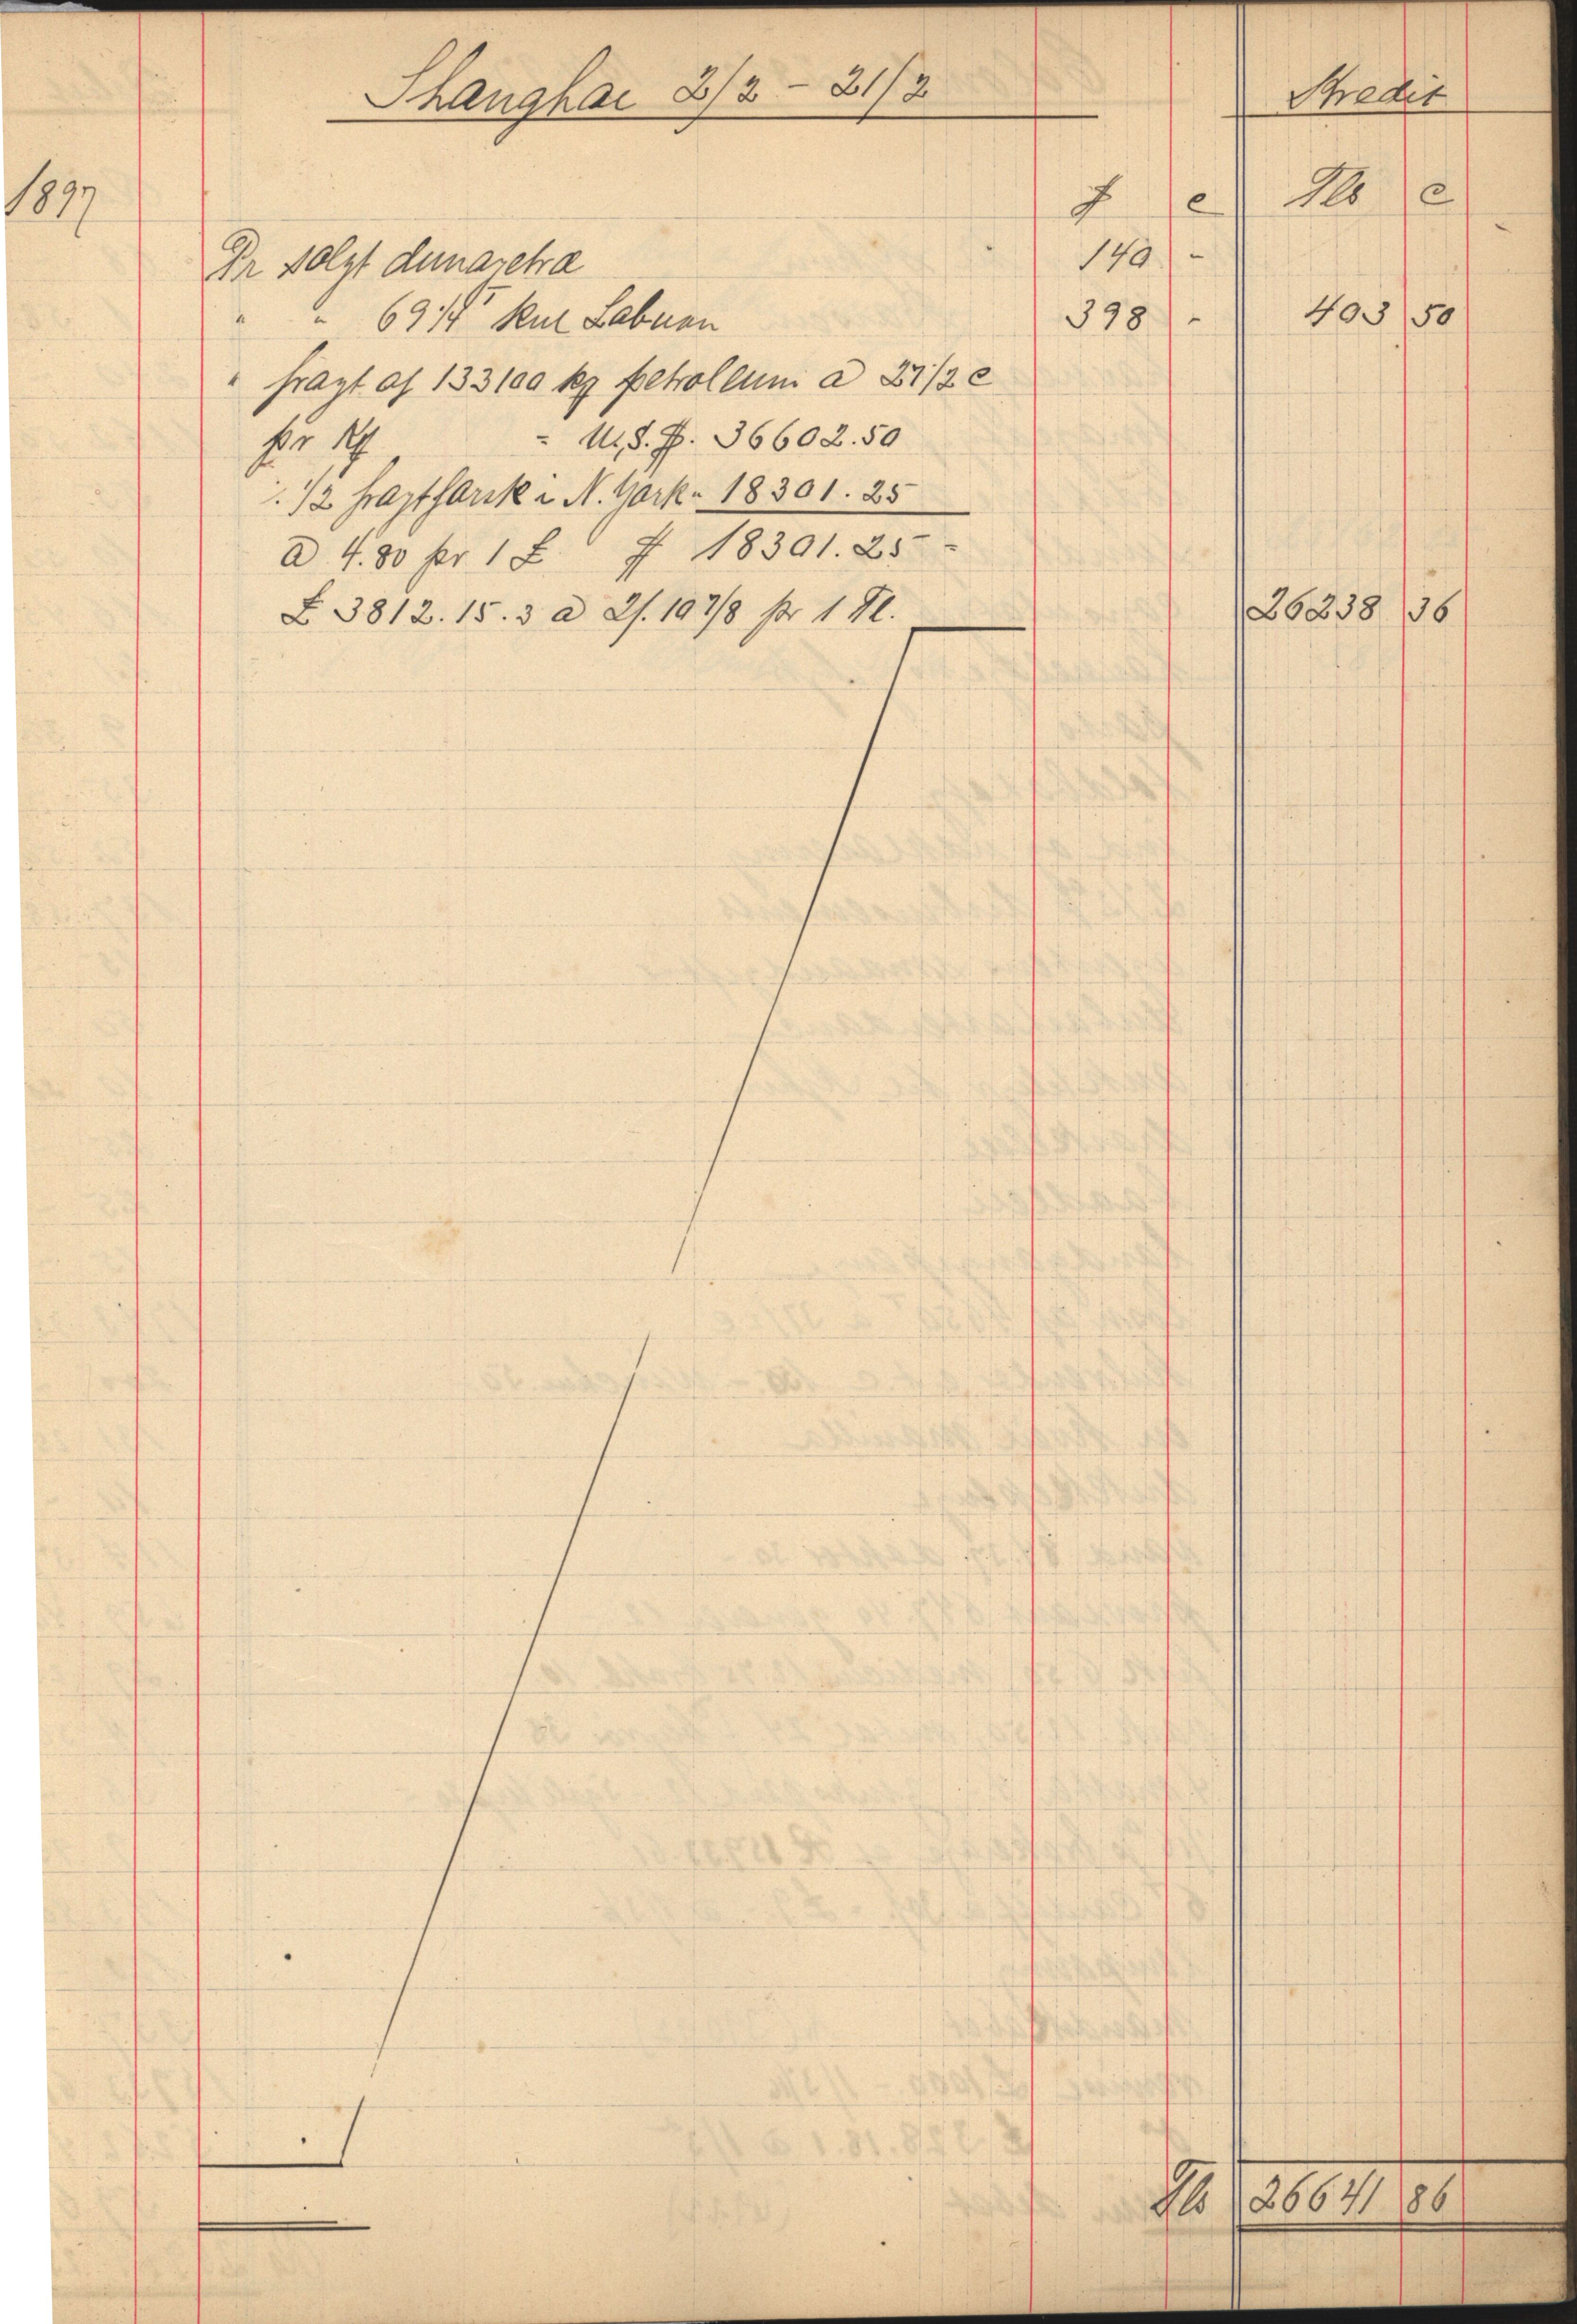 Shanghai 2/2 - 21/2 Kredit
1897 $ c Tls c
Pr solgt 140 -
" " 69 1/4 T kul Labuan 398 - 403 50
" fragt af 133100 ks petroleum a 27 1/2 c
pr ks = U.S. $. 36602.50
1/2 fragt i N. York " 18301.25
a 4.80 pr 1 £ $ 18301.25 =
£ 3812.15.3 a 2/. 10 7/8 pr 1 Tl. 26238 36
Tls 26641 86